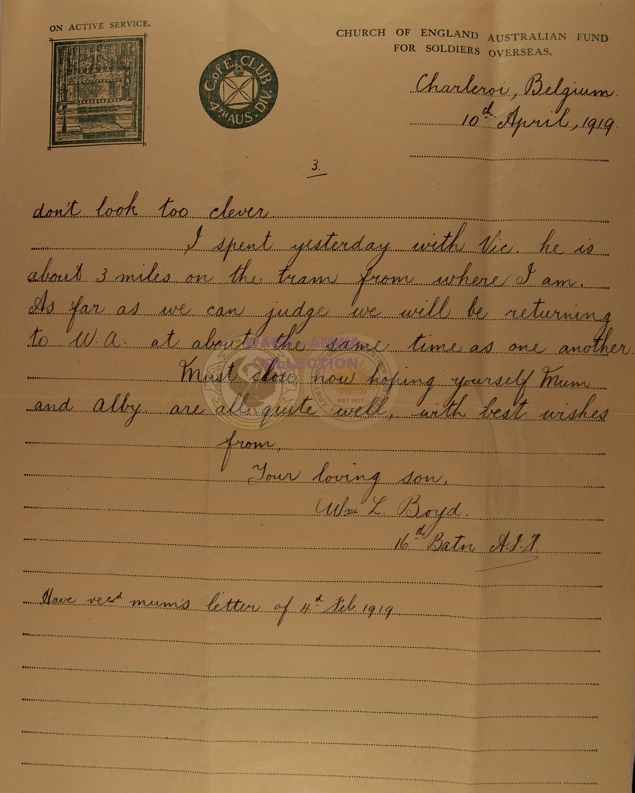 ON ACTIVE SERVICE.
CHURCH OF ENGLAND AUSTRALIAN FUND
FOR SOLDIERS OVERSEAS.
C. of E. CLUB
4TH AUS. DIV.
Charleroi, Belgium.
10th April, 1919.
3.
don't look too clever.
I spent yesterday with Vic. he is
about 3 miles on the tram from where I am.
As far as we can judge we will be returning
to W.A. at about the same time as one another.
Must close now hoping yourself Mum
and Alby. are all quite well, with best wishes
from,
Your loving son,
Wm L Boyd.
16th Batn A.I.F.
Have recd mum's letter of 4th Feb 1919
COLLECTION